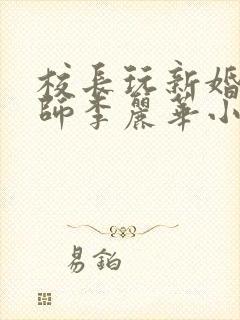 校長玩新婚
師李麗華小
易鉑